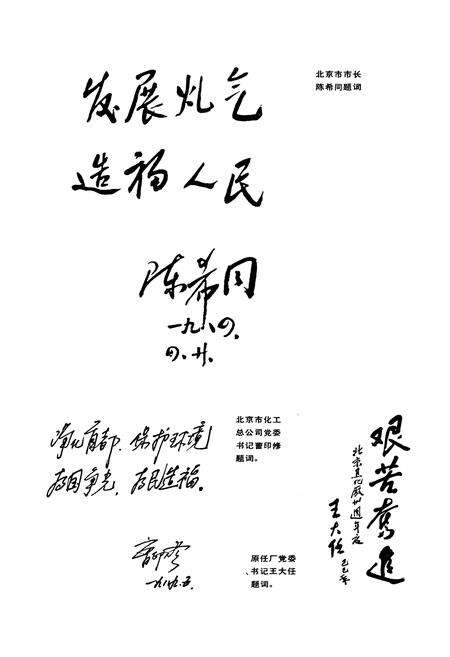 北京市市长
陈希同题词
发展 气
造福人民
陈希同
一九八四.
四.廿.
北京市化工
总公司党委
书记曹印修
题词。
净化首都、保护环境
为国争光、为民造福。
一九八九.五.
原任厂党委
、书记王大任
题词。
艰苦奮進
北京焦化厰卅週年庆
王大任 己巳年